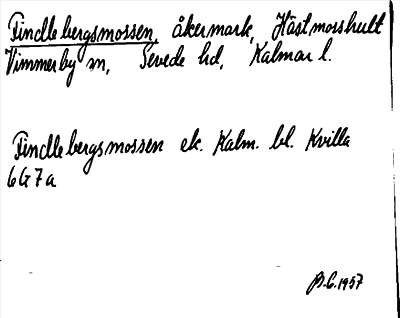 Findlebergsmossen, åkermark, Hästmosshult
Vimmerby sn, Sevede hd, Kalmar l.
Findlebergsmossen ek. Kalm. bl. Kvilla
6G7a
B.G. 1957